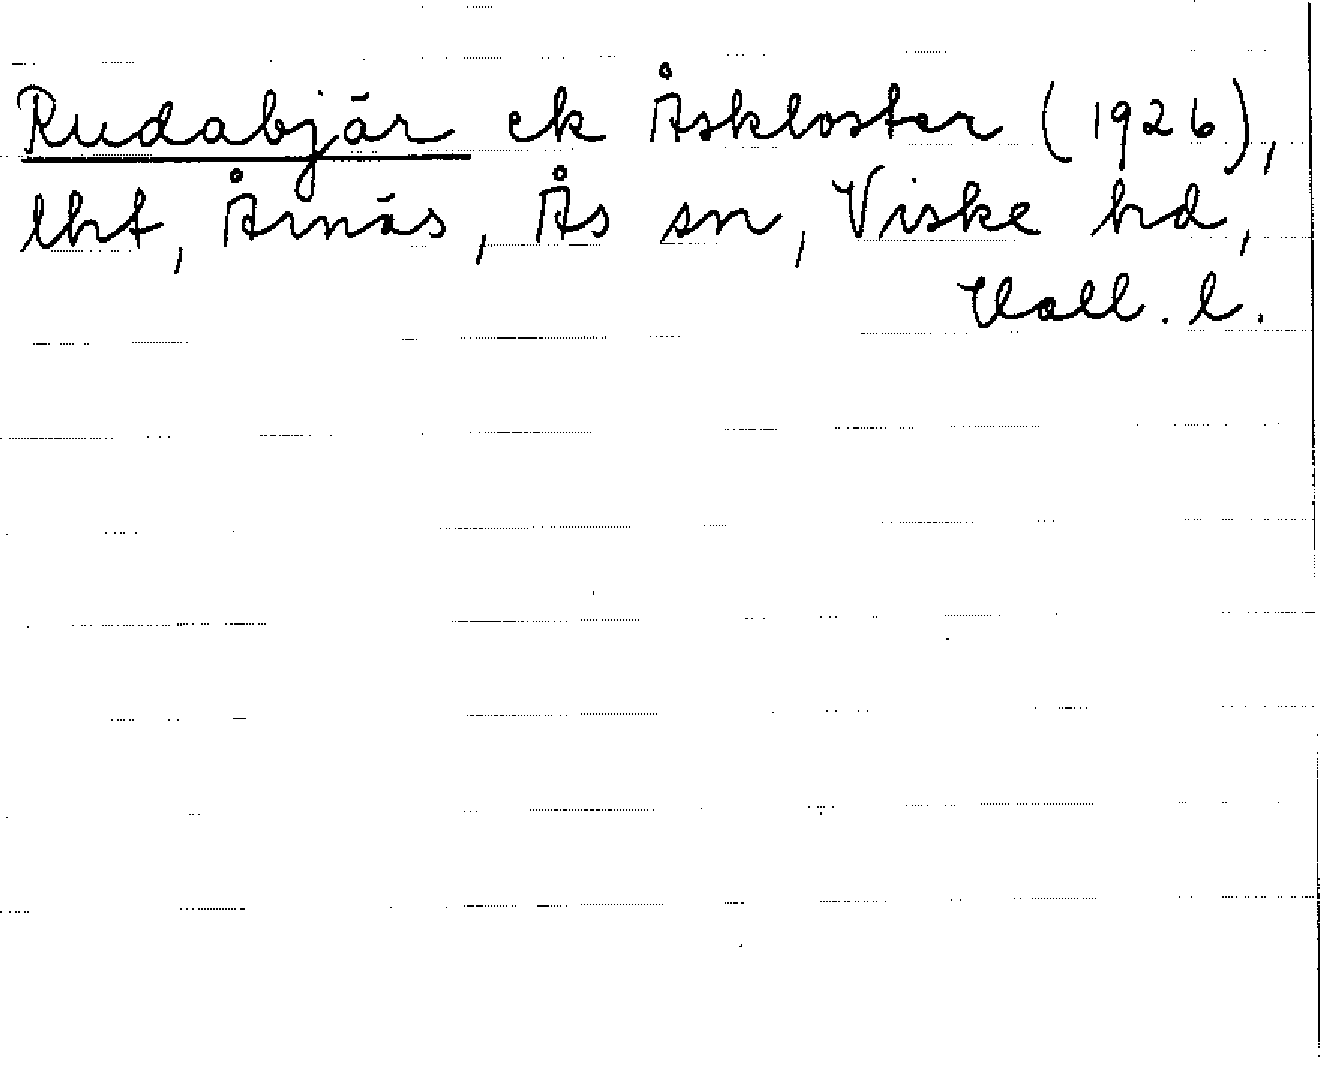 Rudabjär ek Åskloster (1926),
lht, Årnäs, Ås sn, Viske hd,
Hall. l.